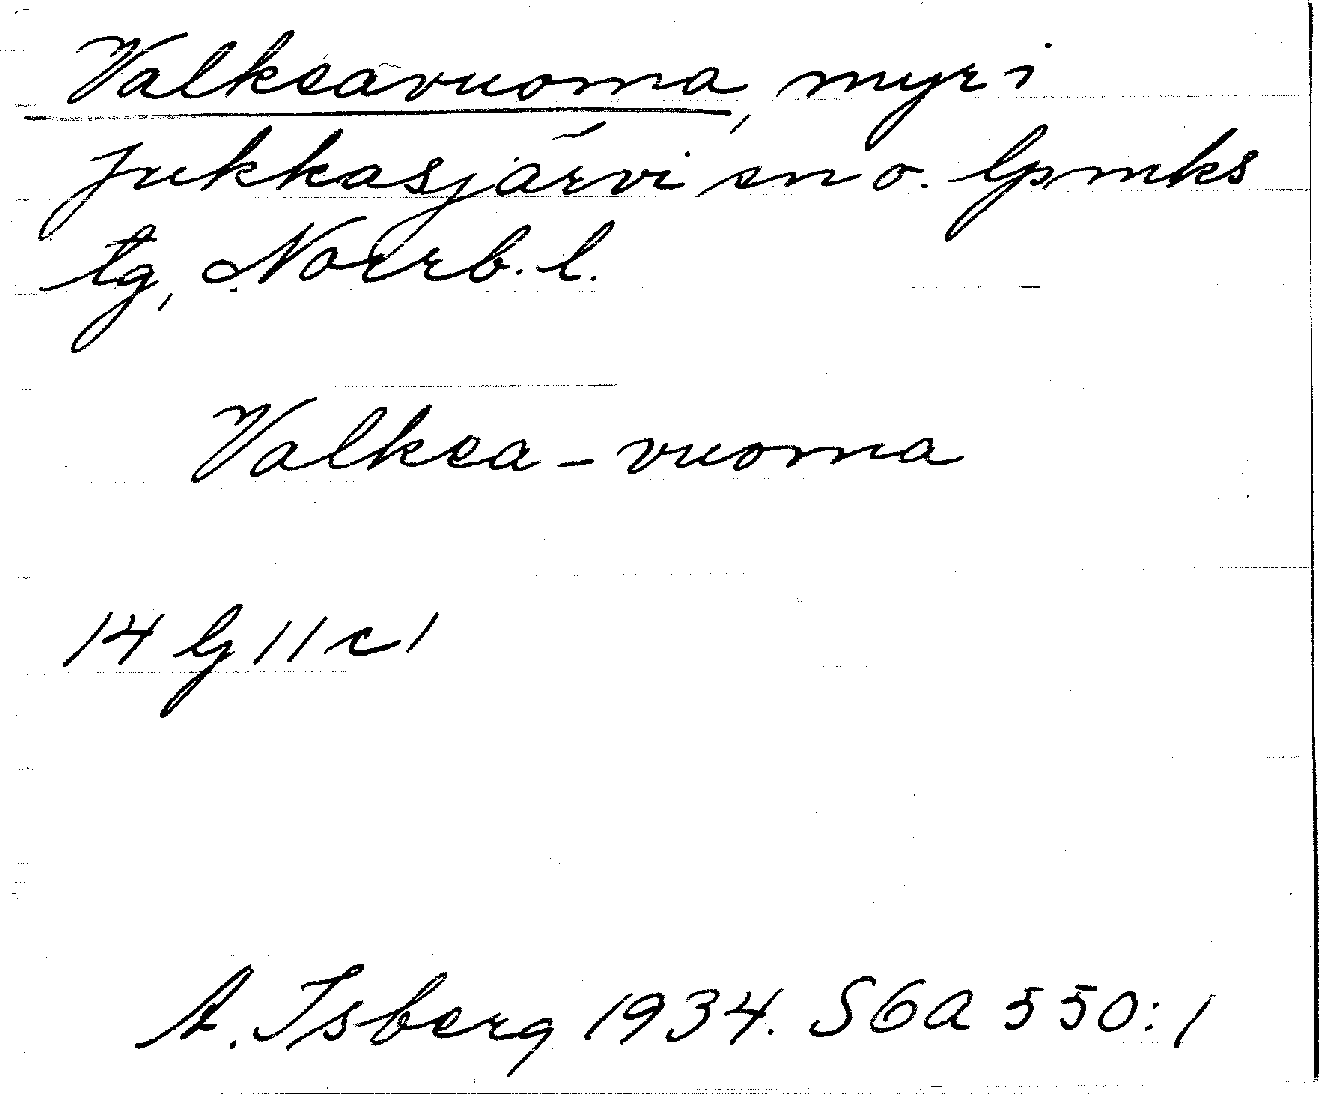 Valkeavuoma, myr i
Jukkasjärvi sn o. lpmks
tg, Norrb. l.
Valkea-vuoma
14 G 11 c 1
A. Isberg 1934. SGA 550:1